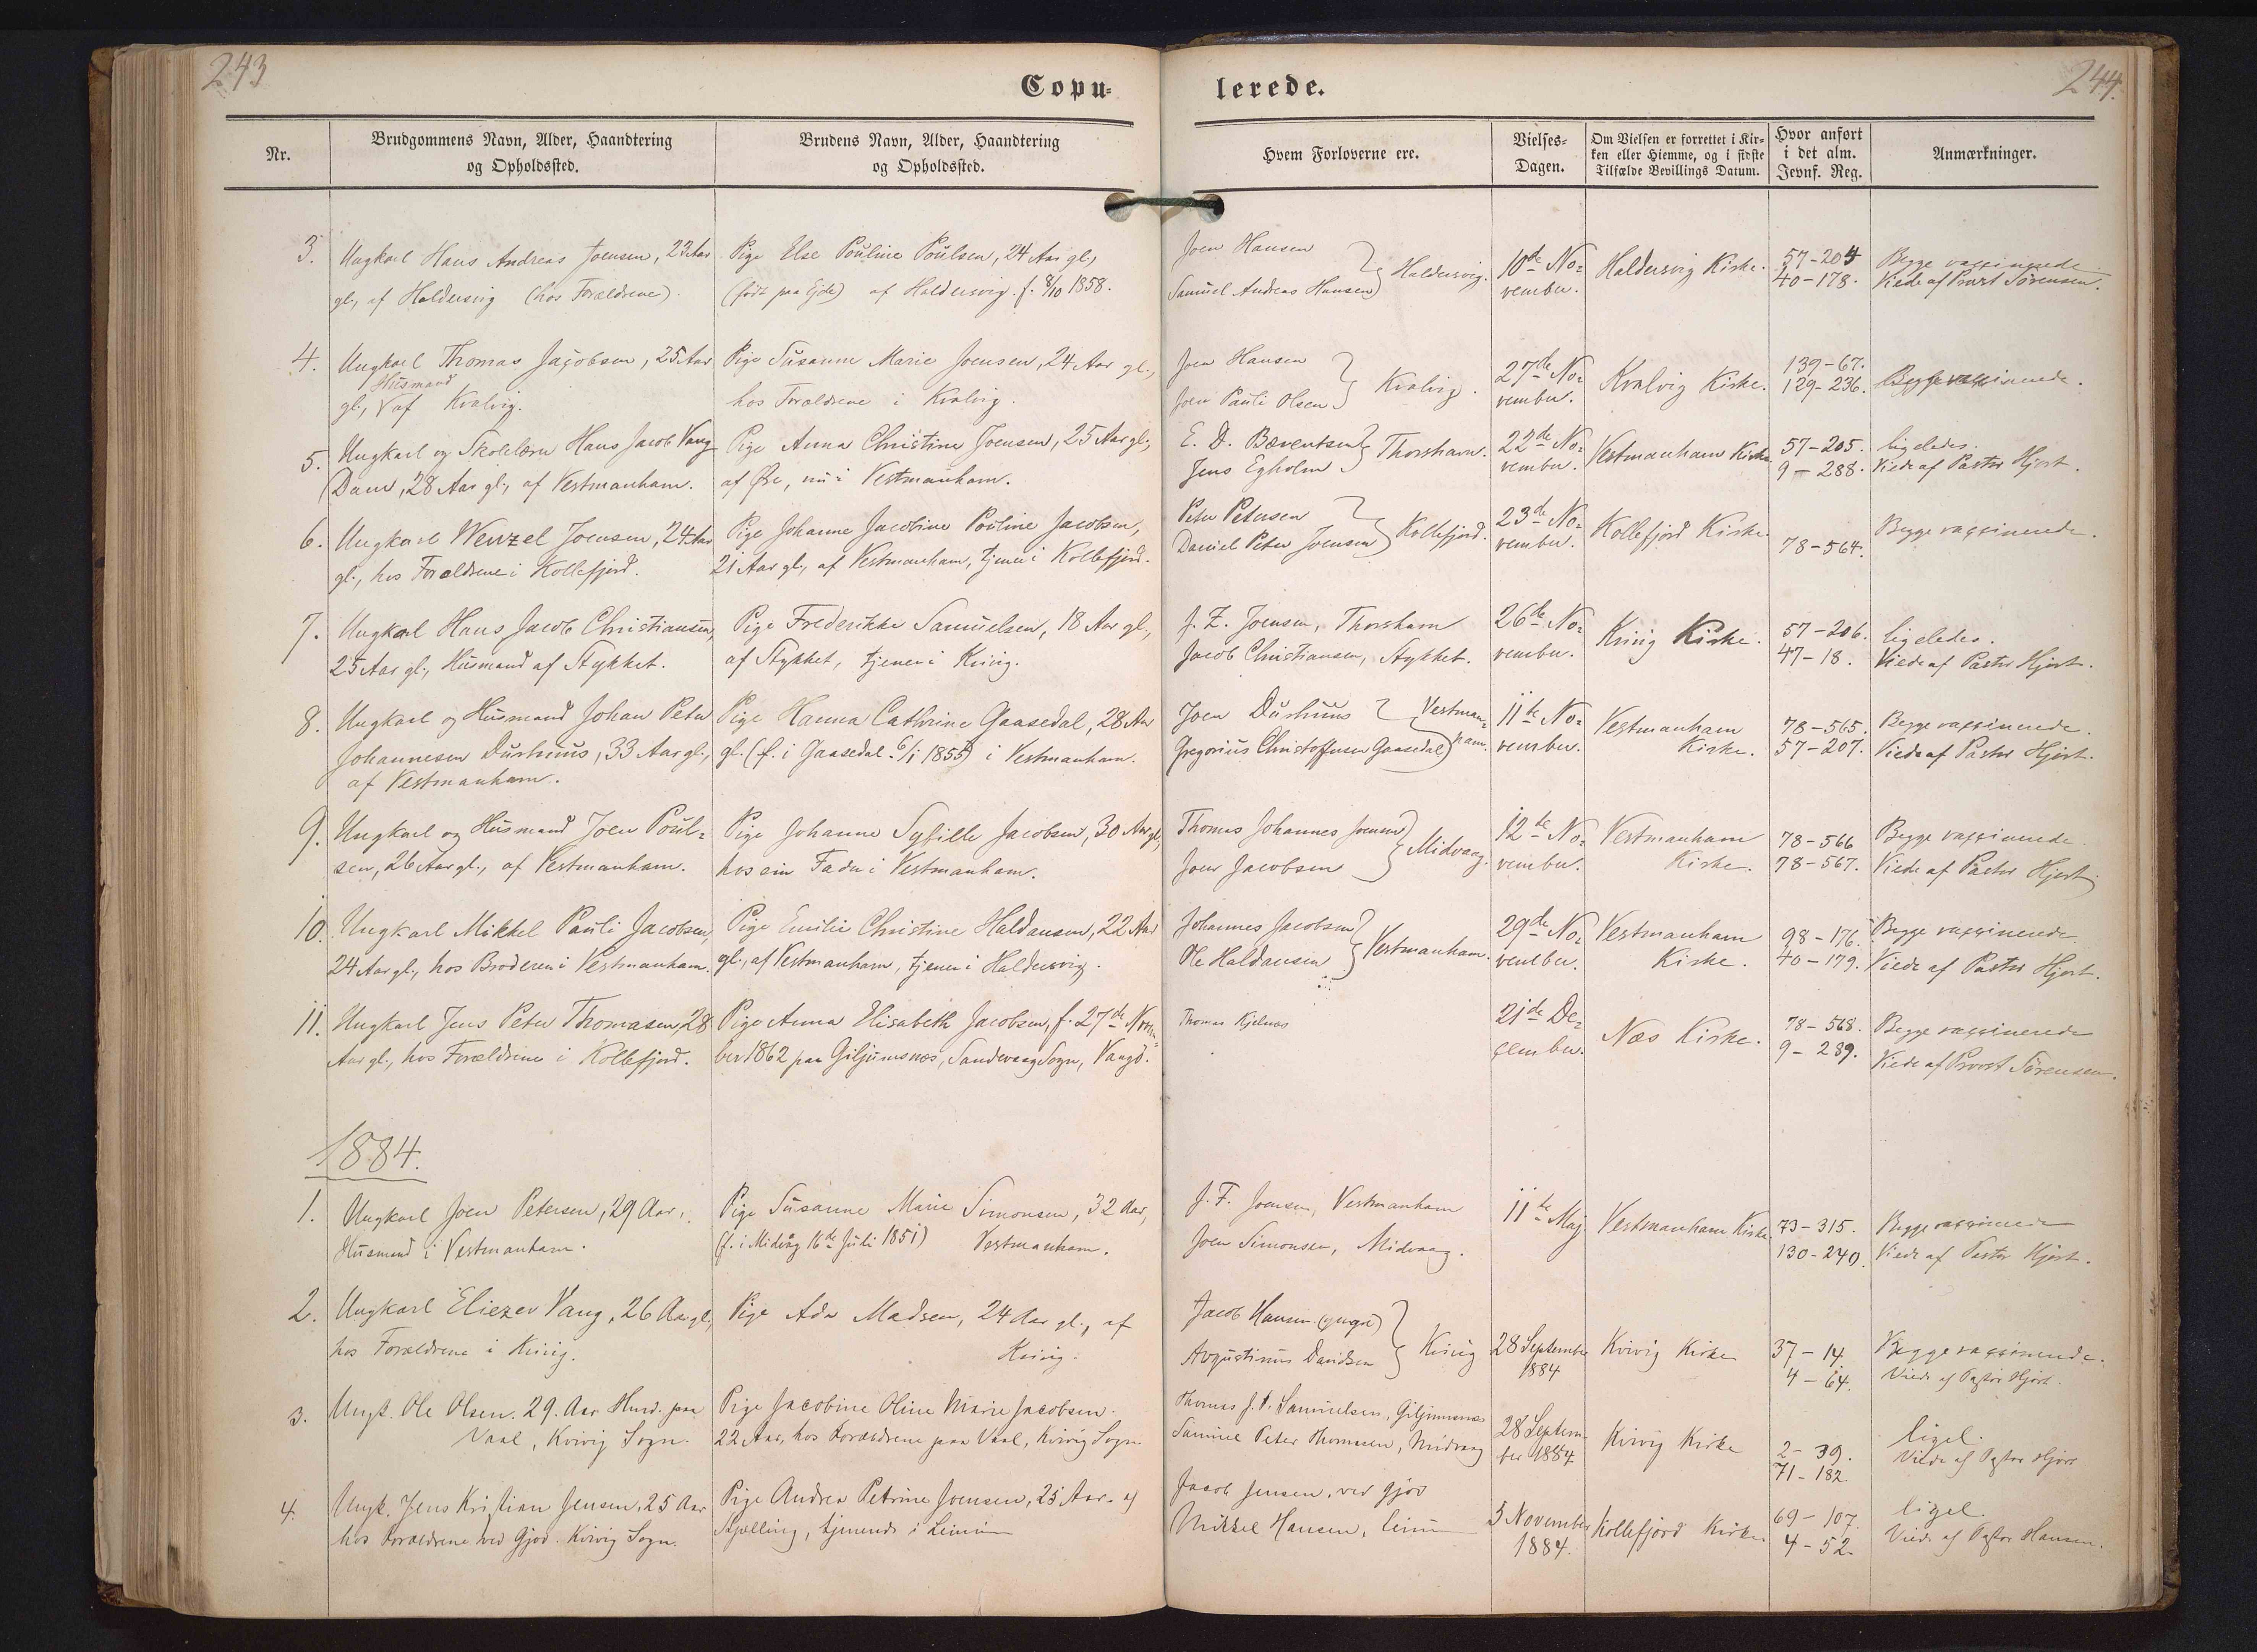 243
244.
Copu-
lerede.
Nr.
Brudgommens Navn, Alder, Haandtering
og Opholdssted.
Brudens Navn, Alder, Haandtering
og Opholdssted.
Hvem Forloverne ere.
Vielses-
Dagen.
Om Vielsen er forrettet i Kir-
ken eller Hiemme, og i sidste
Tilfælde Bevillings Datum.
Hvor anført
i det alm.
Jevnf. Reg.
Anmærkninger.
3.
Ungkarl Hans Andreas Joensen, 23 Aar
gl., af Haldersvig (hos Forældrene).
Pige Else Pouline Poulsen, 24 Aar gl.,
(født paa Ejde) af Haldersvig. f. 8/10 1858.
Joen Hansen
Samuel Andreas Hansen
Haldersvig.
10de No=
vember.
Haldersvig Kirke.
57-204
40-178.
Begge vaxinerede
Viede af Provst Sörensen.
4.
Ungkarl Thomas Jacobsen, 25 Aar
Husmand
gl., V af Kvalvig.
Pige Susanne Marie Joensen, 24 Aar gl.,
hos Forældrene i Kvalvig.
Joen Hansen
Joen Pauli Olsen
Kvalvig.
27de No=
vember.
Kvalvig Kirke.
139-67.
129-236.
Begge vaxinerede.
5.
Ungkarl og Skolelærer Hans Jacob Vang
Dam, 28 Aar gl., af Vestmanhavn.
Pige Anna Christine Joensen, 25 Aar gl.,
af Øre, nu i Vestmanhavn.
E. D. Bærentsen
Jens Egholm
Thorshavn.
22de No=
vember.
Vestmanhavn Kirke
57-205.
9-288.
ligeledes.
Viede af Pastor Hjort.
6.
Ungkarl Wenzel Joensen, 24 Aar
gl., hos Forældrene i Kollefjord.
Pige Johanne Jacobine Pouline Jacobsen,
21 Aar gl., af Vestmanhavn, tjener i Kollefjord.
Peter Petersen
Daniel Peter Joensen
Kollefjord.
23de No=
vember.
Kollefjord Kirke.
78-564.
Begge vaxinerede.
7.
Ungkarl Hans Jacob Christiansen,
25 Aar gl., Husmand af Stykket.
Pige Frederikke Samuelsen, 18 Aar gl.,
af Stykket, tjener i Kvivig.
J. Z. Joensen, Thorshavn
Jacob Christiansen, Stykket.
26de No=
vember.
Kvivig Kirke.
57-206.
47-18.
ligeledes.
Viede af Pastor Hjort.
8.
Ungkarl og Husmand Johan Peter
Johannesen Dushuus, 33 Aar gl.,
af Vestmanhavn.
Pige Hanna Cathrine Gaasedal, 28 Aar
gl. (f. i Gaasedal 6/1 1855) i Vestmanhavn.
Joen Dushuus
Gregorius Christoffersen Gaasedal
Vestman=
havn.
11te No=
vember.
Vestmanhavn
Kirke.
78-565.
57-207.
Begge vaxinerede.
Viede af Pastor Hjort.
9.
Ungkarl og Husmand Joen Poul=
sen, 26 Aar gl., af Vestmanhavn.
Pige Johanne Sybille Jacobsen, 30 Aar gl.,
hos sin Fader i Vestmanhavn.
Thomas Johannes Joensen
Joen Jacobsen
Midvaag.
12te No=
vember.
Vestmanhavn
Kirke.
78-566
78-567.
Begge vaxinerede
Viede af Pastor Hjort
10.
Ungkarl Mikkel Pauli Jacobsen,
24 Aar gl., hos Broderen i Vestmanhavn.
Pige Emilie Christine Haldansen, 22 Aar
gl., af Vestmanhavn, tjener i Haldersvig.
Johannes Jacobsen
Ole Haldansen
Vestmanhavn.
29de No=
vember.
Vestmanhavn
Kirke.
98-176.
40-179.
Begge vaxinerede
Viede af Pastor Hjort.
11.
Ungkarl Jens Peter Thomasen, 28
Aar gl., hos Forældrene i Kollefjord.
Pige Anna Elisabeth Jacobsen, f. 27de Novem=
ber 1862 paa Giljumsnæs, Sandevaag Sogn, Vaagö.
Thomas Kjelnæs
21de De=
cember.
Næs Kirke.
78-568.
9-289.
Begge vaxinerede
Viede af Provst Sörensen.
1884.
1.
Ungkarl Joen Petersen, 29 Aar,
Husmand i Vestmanhavn.
Pige Susanne Marie Simonsen, 32 Aar,
(f. i Midvåg 16de Juli 1851) Vestmanhavn.
J. F. Joensen, Vestmanhavn
Joen Simonsen, Midvaag.
11te Maj
Vestmanhavn Kirke
73-315.
130-240.
Begge vaxinerede
Viede af Pastor Hjort.
2.
Ungkarl Eliezer Vang, 26 Aar gl.,
hos Forældrene i Kvivig.
Pige Ada Madsen, 24 Aar gl., af
Kvivig.
Jacob Hansen (yngre)
Avgustinus Davidsen
Kvivig
28 September
1884
Kvivig Kirke
37-14.
4-64.
Begge vaxinerede.
Viede af Pastor Hjort.
3.
Ungk. Ole Olsen. 29. Aar Husd. paa
Vaal, Kvivig Sogn.
Pige Jacobine Oline Marie Jacobsen.
22 Aar, hos Forældrene paa Vaal, Kvivig Sogn.
Thomas J. P. Samuelsen, Giljumsnæs
Samuel Peter Thomasen, Midvaag
28 Septem=
ber 1884
Kvivig Kirke
2-39.
71-182.
ligel.
Viede af Pastor Hjort
4.
Ungk. Jens Kristian Jensen, 25 Aar
hos Forældrene ved Gjov. Kvivig Sogn.
Pige Andrea Petrine Joensen, 25 Aar. af
Skjelling, tjenende i Leinum
Jacob Jensen, ved Gjov
Mikkel Hansen, Leinum
5 November
1884.
Kollefjord Kirke.
69-107.
4-52.
ligel.
Viede af Pastor Hansen.